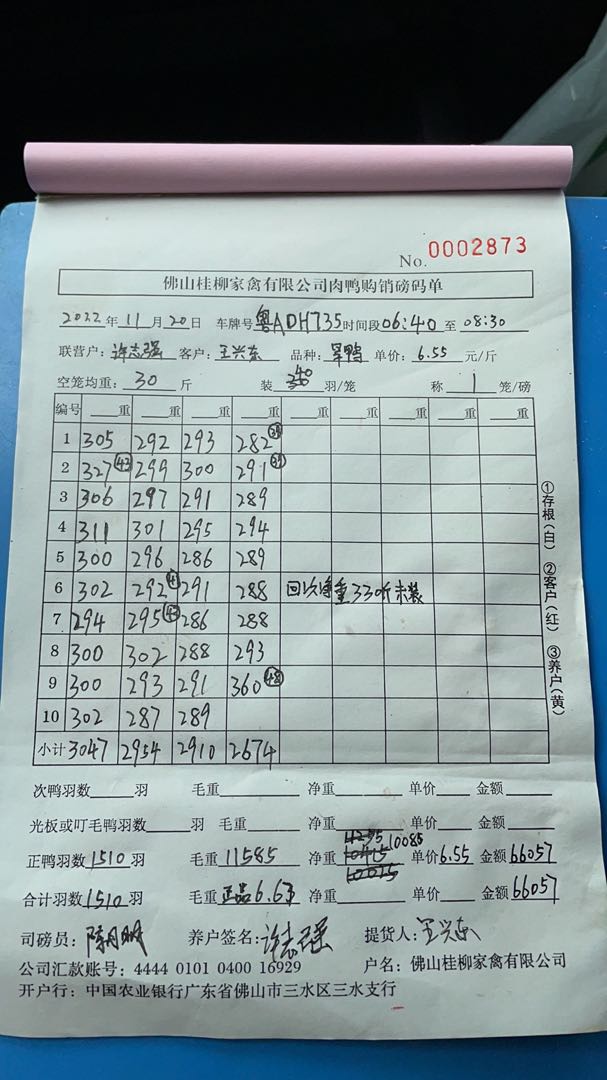 No. 0002873
佛山桂柳家禽有限公司肉鸭购销磅码单
2022年11月20日 车牌号粤ADH735时间段06:40至08:30
联营户：许志强 客户：王兴东 品种：旱鸭 单价：6.55元/斤
空笼均重：30斤 装40羽/笼 称1笼/磅
编号 重 重 重 重 重 重 重 重 重
1 305 292 293 282 39
2 327 43 299 300 291 39
3 306 297 291 289
4 311 301 295 294
5 300 296 286 289
6 302 292 41 291 288
7 294 295 286 288
8 300 302 288 293
9 300 293 291 360 48
10 302 287 289
小计 3047 2954 2910 2674
①存根(白) ②客户(红) ③养户(黄)
次鸭羽数 羽 毛重 净重 单价 金额
光板或叮毛鸭羽数 羽 毛重 净重 单价 金额
正鸭羽数1510羽 毛重11585 净重10085 单价6.55 金额66057
合计羽数1510羽 毛重正品6.67 净重 单价 金额66057
司磅员： 养户签名：许志强 提货人：王兴东
公司汇款账号：4444 0101 0400 16929 户名：佛山桂柳家禽有限公司
开户行：中国农业银行广东省佛山市三水区三水支行